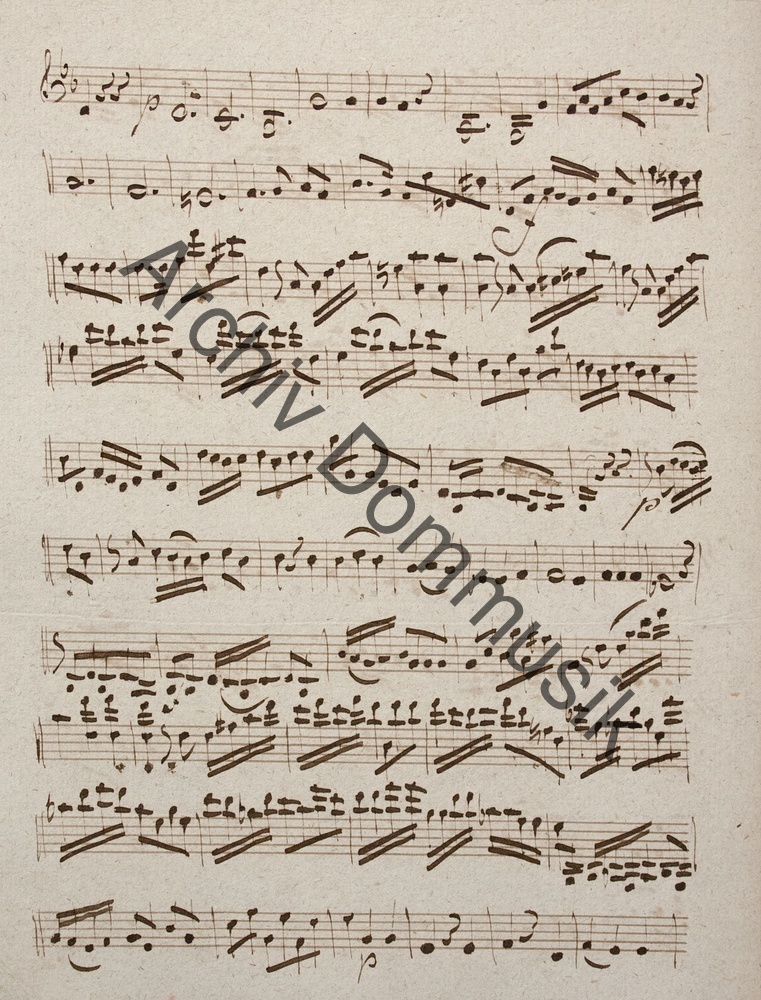 p
f
p
p
Archiv Dommusik